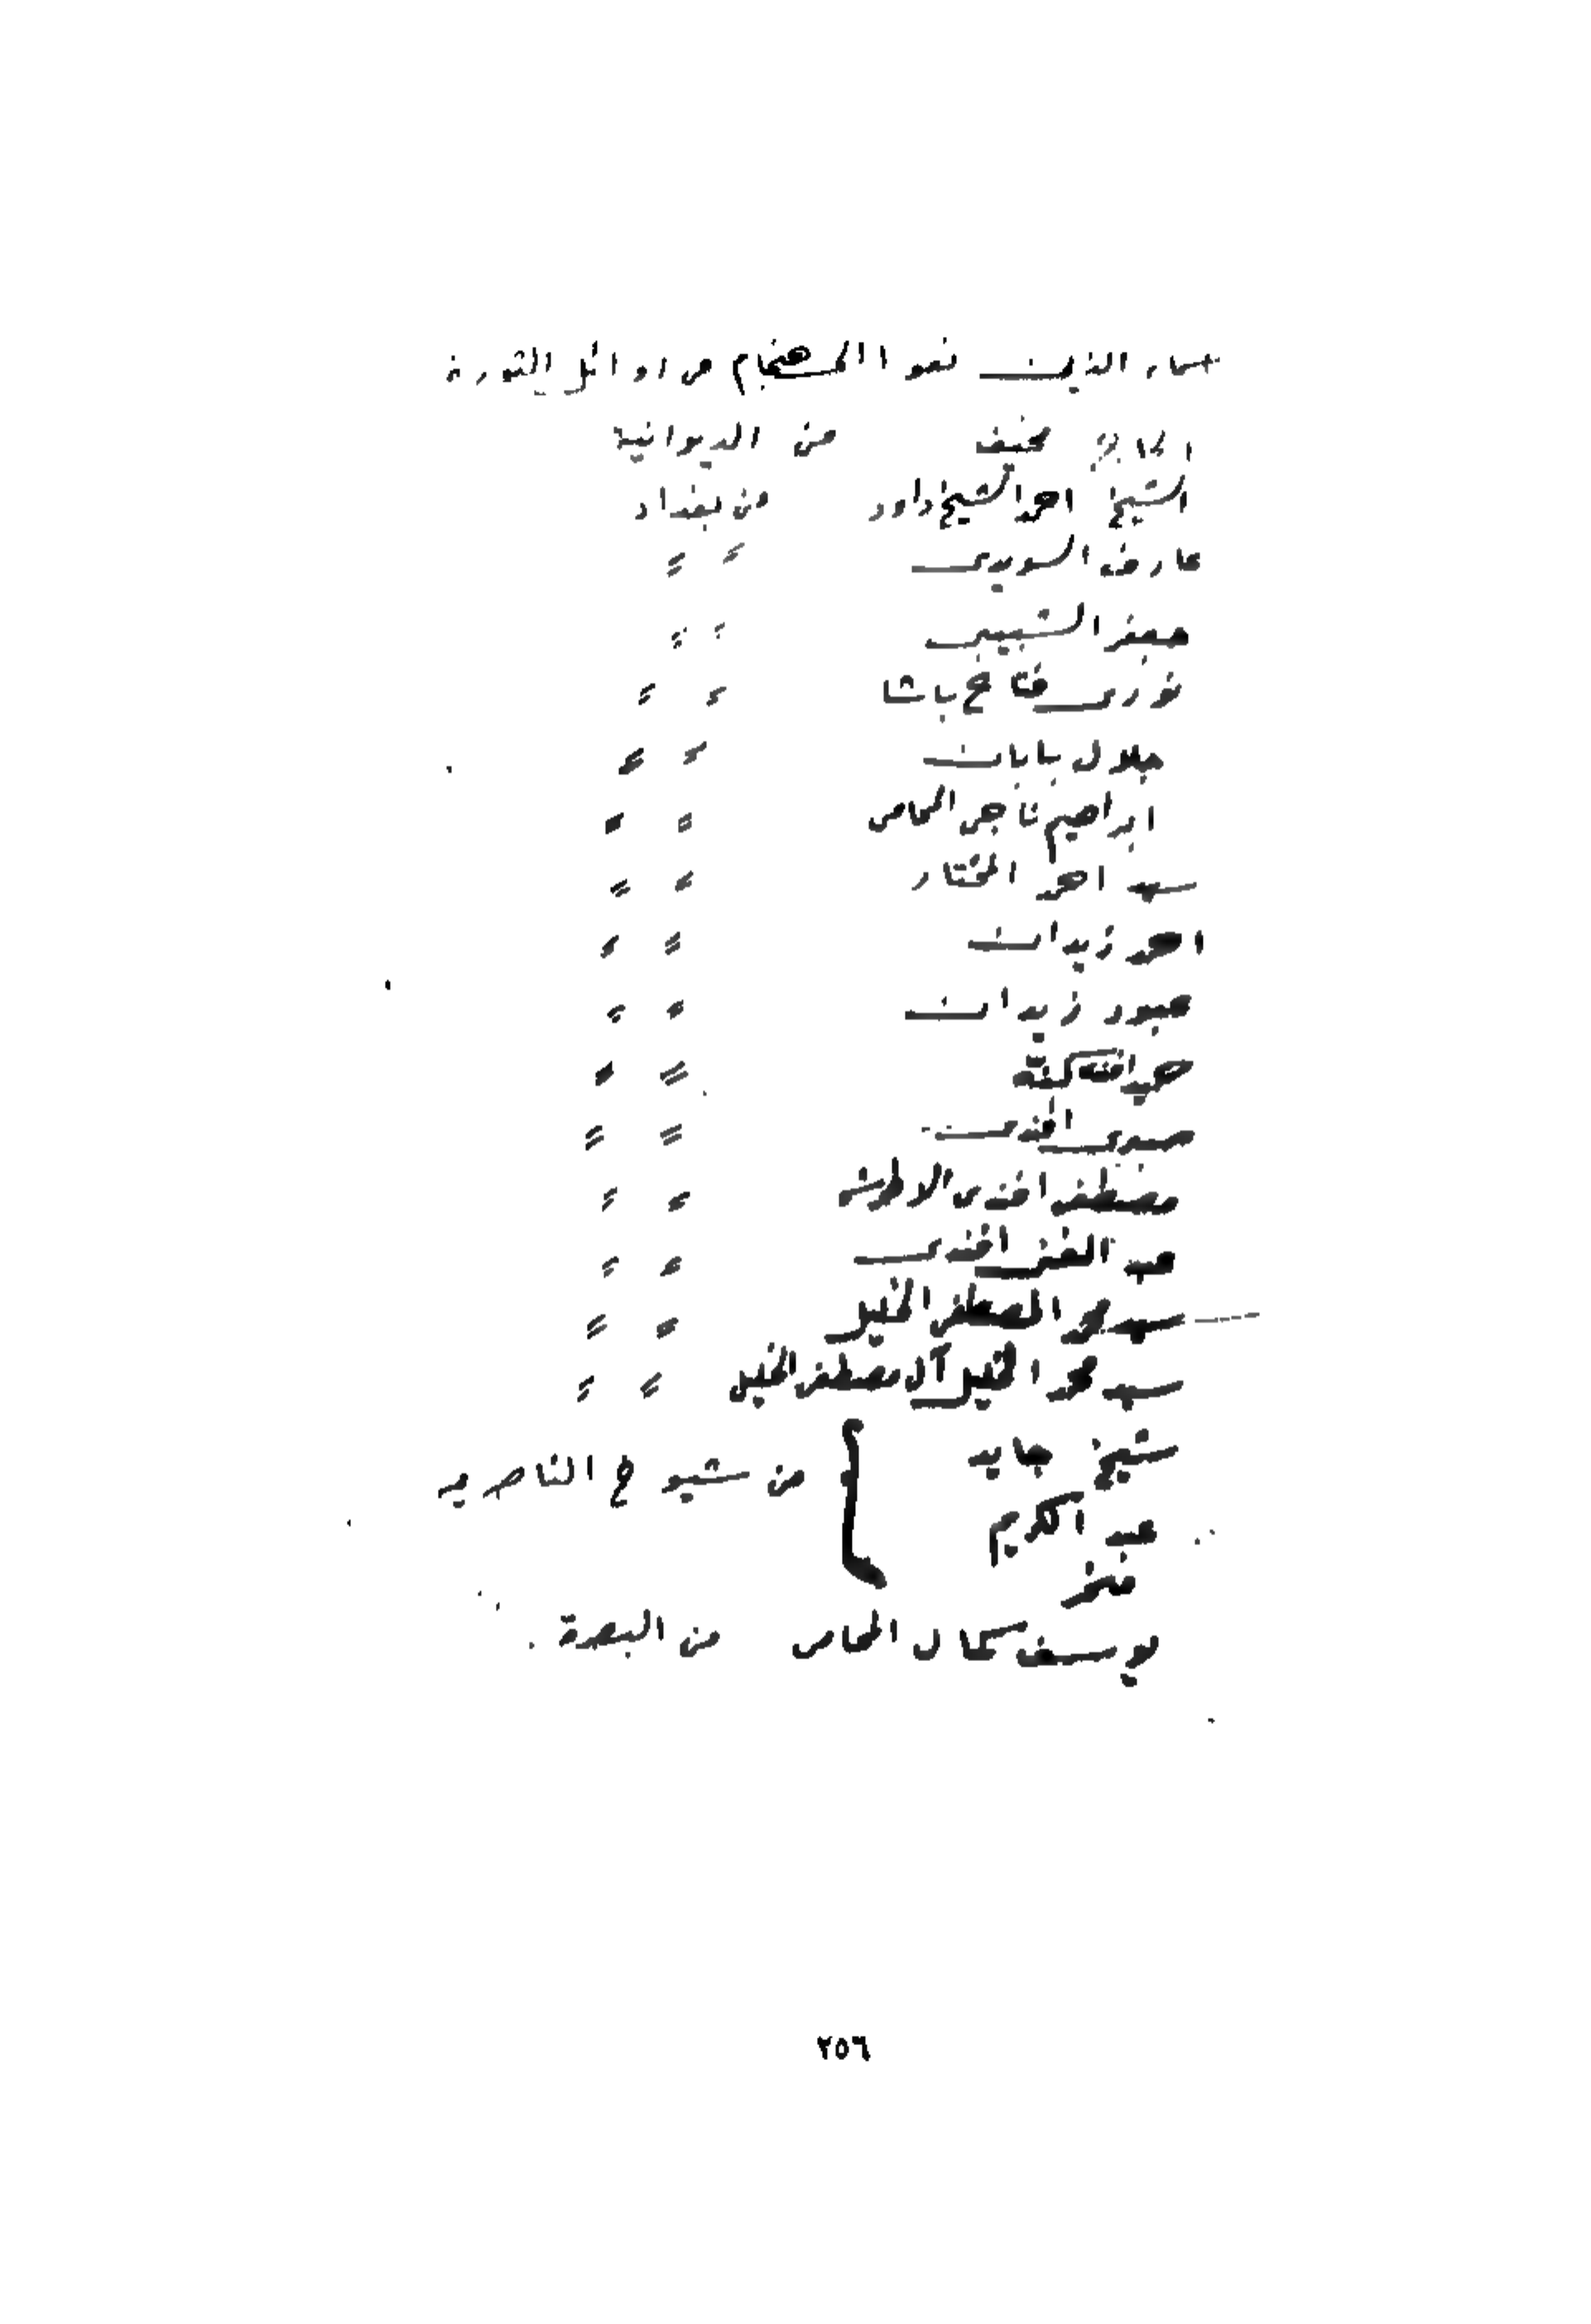 اسماء الذين نفوا الى هنجام من اوائل الثورة
الحاج مخيف من الديوانية
الشيخ احمد الشيخ داود من بغداد
عارف السويدي 〃 〃
جعفر الشبيبي 〃 〃
نوري فتاح باشا 〃 〃
جلال بابان 〃 〃
ابراهيم ناجي المحامي 〃 〃
سيد احمد المختار 〃 〃
احمد زيدان 〃 〃
عبود زيدان 〃 〃
حميد افندي كنه 〃 〃
صبري افندي 〃 〃
مصطفى افندي الاطرش 〃 〃
عبد افندي 〃 〃
سيد محمد المصطفى الخليل 〃 〃
سيد محمود الخليل آل مصطفى الخليل 〃 〃
شيخ من شيوخ الناصرية
عبد الكريم
يوسف كمال المحامي من البصرة
٢٥٦